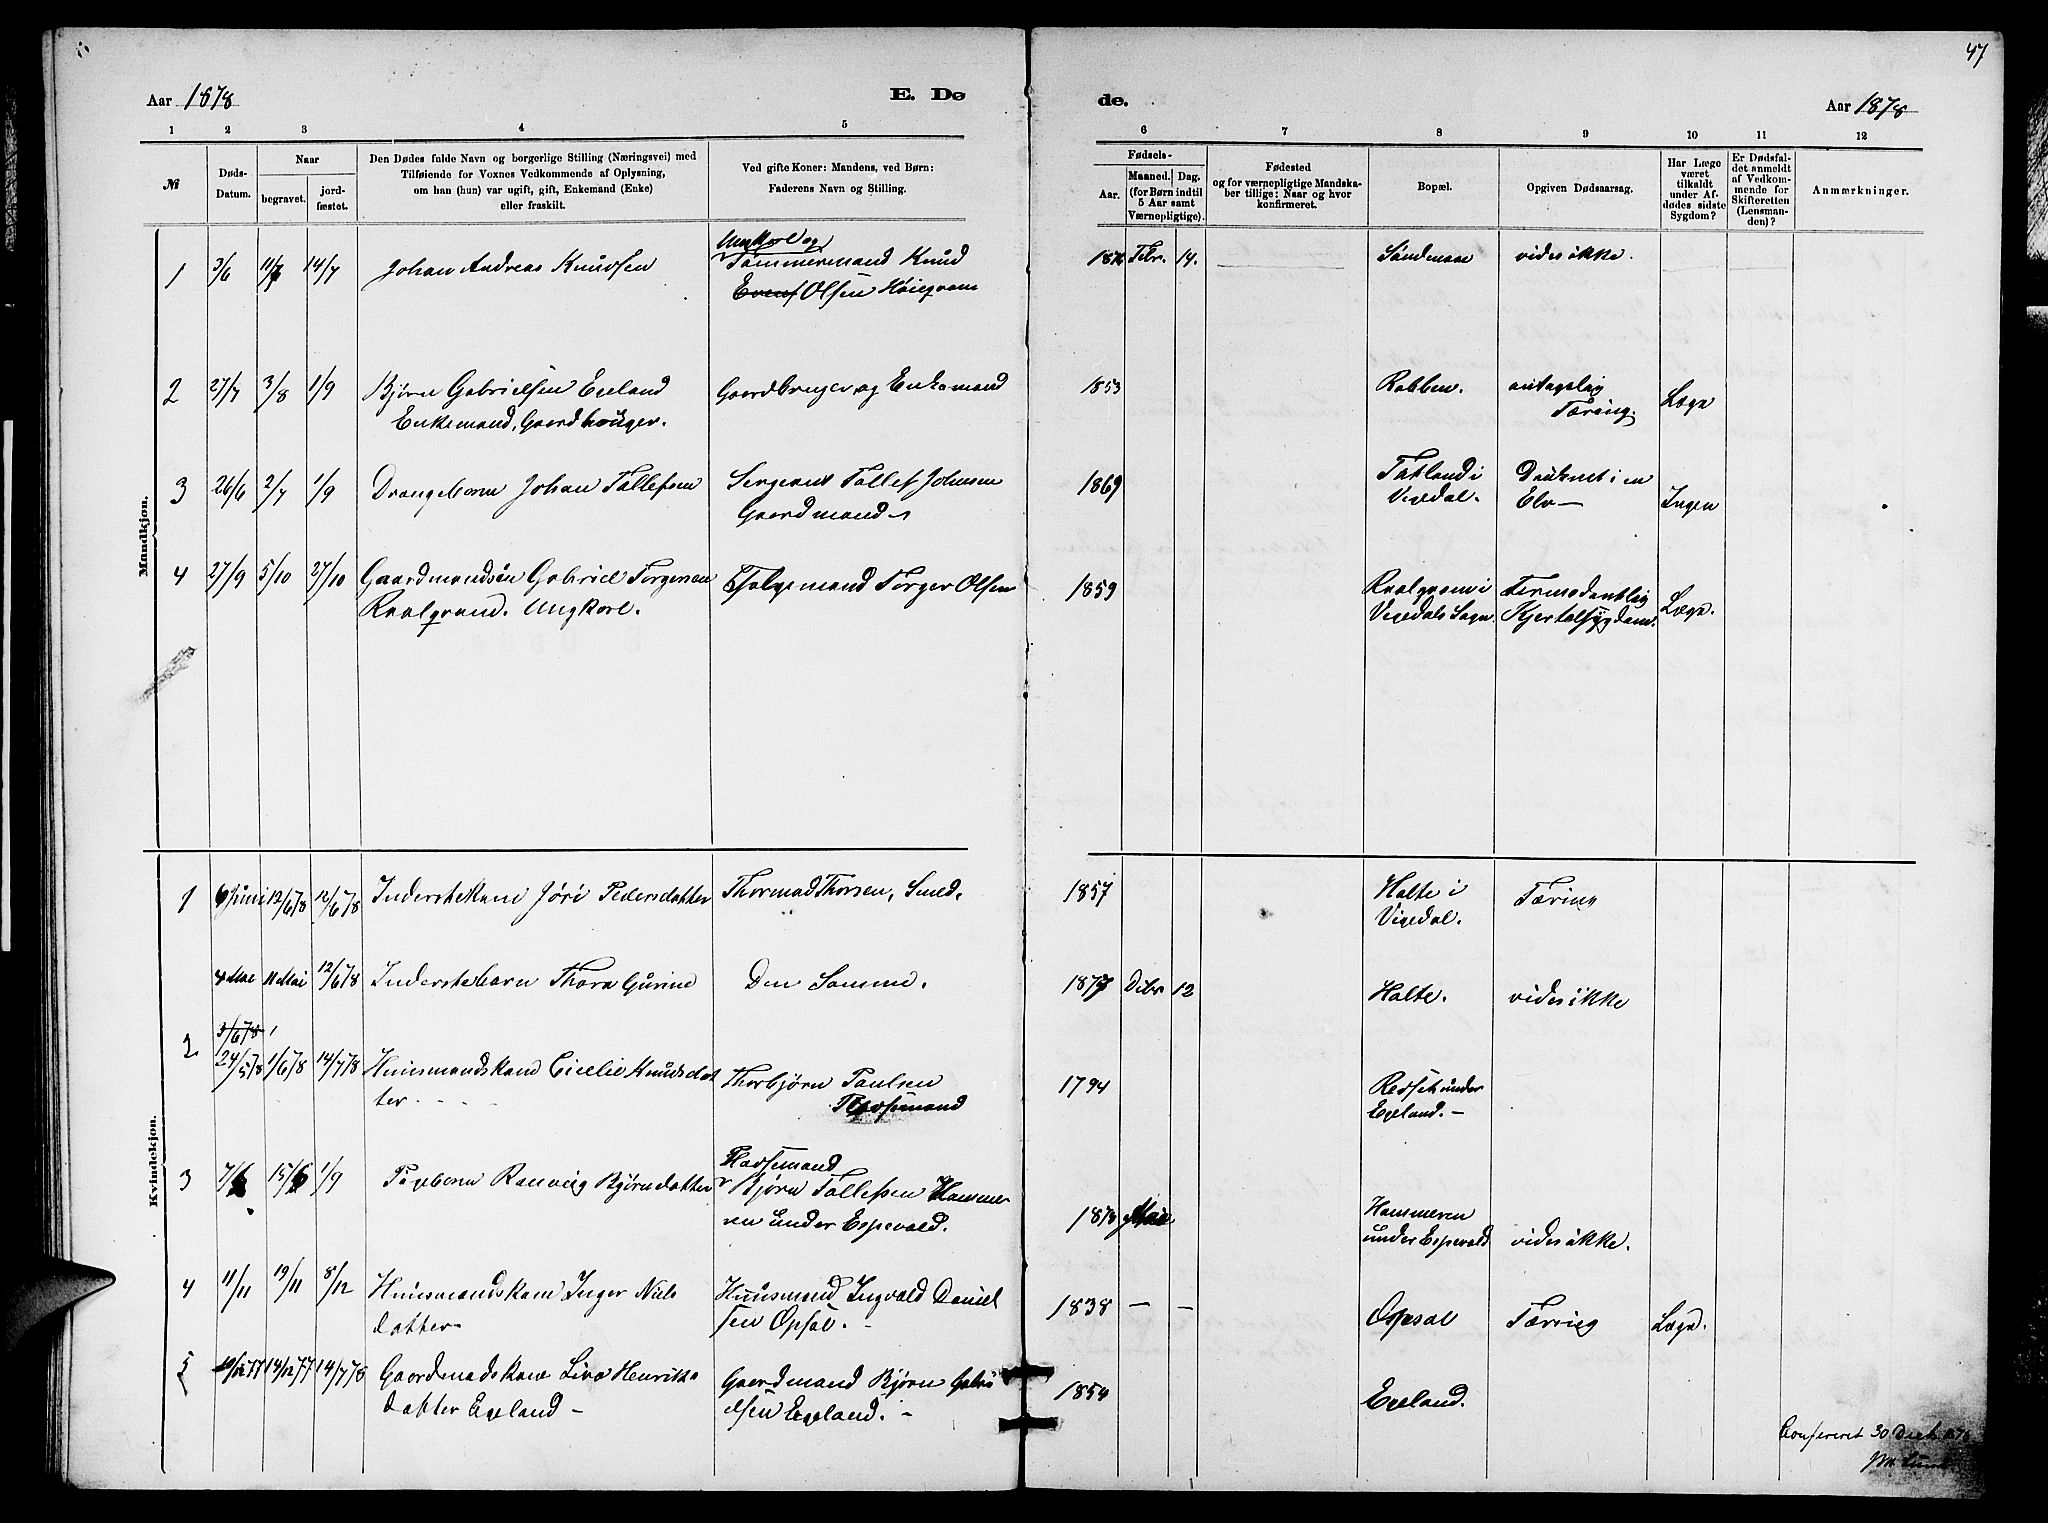 47
Aar 1878
E. Dø
de.
Aar 1878
1 2 3 4 5 6 7 8 9 10 11 12
№
Døds-
Datum.
Naar
begravet.
jord-
fæstet.
Den Dødes fulde Navn og borgerlige Stilling (Næringsvei) med
Tilføiende for Voxnes Vedkommende af Oplysning,
om han (hun) var ugift, gift, Enkemand (Enke)
eller fraskilt.
Ved gifte Koner: Mandens, ved Børn:
Faderens Navn og Stilling.
Fødsels-
Aar.
Maaned. Dag.
(for Børn indtil
5 Aar samt
Værnepligtige).
Fødested
og for værnepligtige Mandska-
ber tillige: Naar og hvor
konfirmeret.
Bopæl.
Opgiven Dødsaarsag.
Har Læge
været
tilkaldt
under Af-
dødes sidste
Sygdom?
Er Dødsfal-
det anmeldt
af Vedkom-
mende for
Skifteretten
(Lensman-
den)?
Anmærkninger.
Mandkjøn.
1 3/6 11/7 14/7 Johan Andreas Knudsen
Ungkarl og
Tømmermand Knud
Even Olsen Høiegram
Febr. 14.
vides ikke.
2 27/7 3/8 1/9 Bjørn Gabrielsen Egeland
Enkemand, Gaardbruger.
Gaardbruger og Enkemand
1853
Rabben.
antagelig
Tæring.
Læge
3 26/6 2/7 1/9 Drengebarn Johan Tollefsen
Sergeant Tollef Johnsen
Gaardmand
1869
Tatland i
Vegedal.
Druknet i en
Elv —
Ingen
4 27/9 5/10 27/10 Gaardmandsøn Gabriel Torgersen
Ungkarl.
Torger Olsen
1859
Vegedals Sogn
Kjertelsygdom.
Læge.
Kvindekjøn.
1 6 Juni 12/6 78 12/6 78 Inderstekone Jøri Pedersdatter
Thormod Thorsen, Smed.
1857
Holte i
Vigedal.
Tæring
4 Mai 11 Mai 12/6 78 Inderstebarn Thora Gurine
Den Samme.
1877 Debr 12
Holte.
vides ikke
3/6 78
2 24/5 78 1/6 78 14/7 78 Huusmandskone Cicelie Knudsdat
ter
Thorbjørn Paulsen
Pladsemand
1794
under
Egeland. —
3 7/6 15/6 1/9 Pigebarn Ranveig Bjørnsdatter
Pladsemand
Bjørn Tollefsen Hamme-
ren under Espevold.
1878 Mai
Hammeren
under Espevold
vides ikke.
4 11/11 19/11 8/12 Huusmandskone Inger Niels
datter
Huusmand Ingvald Daniel
sen Opsal. —
1838 — —
Opsal
Tæring
Læge.
5 10/12 77 14/12 77 14/7 78 Gaardmadskone Live Henriks
datter Egeland —
Gaardmand Bjørn Gabri
elsen Egeland. —
1854
Egeland.
Confereret 30 Decb. 1878
Lund